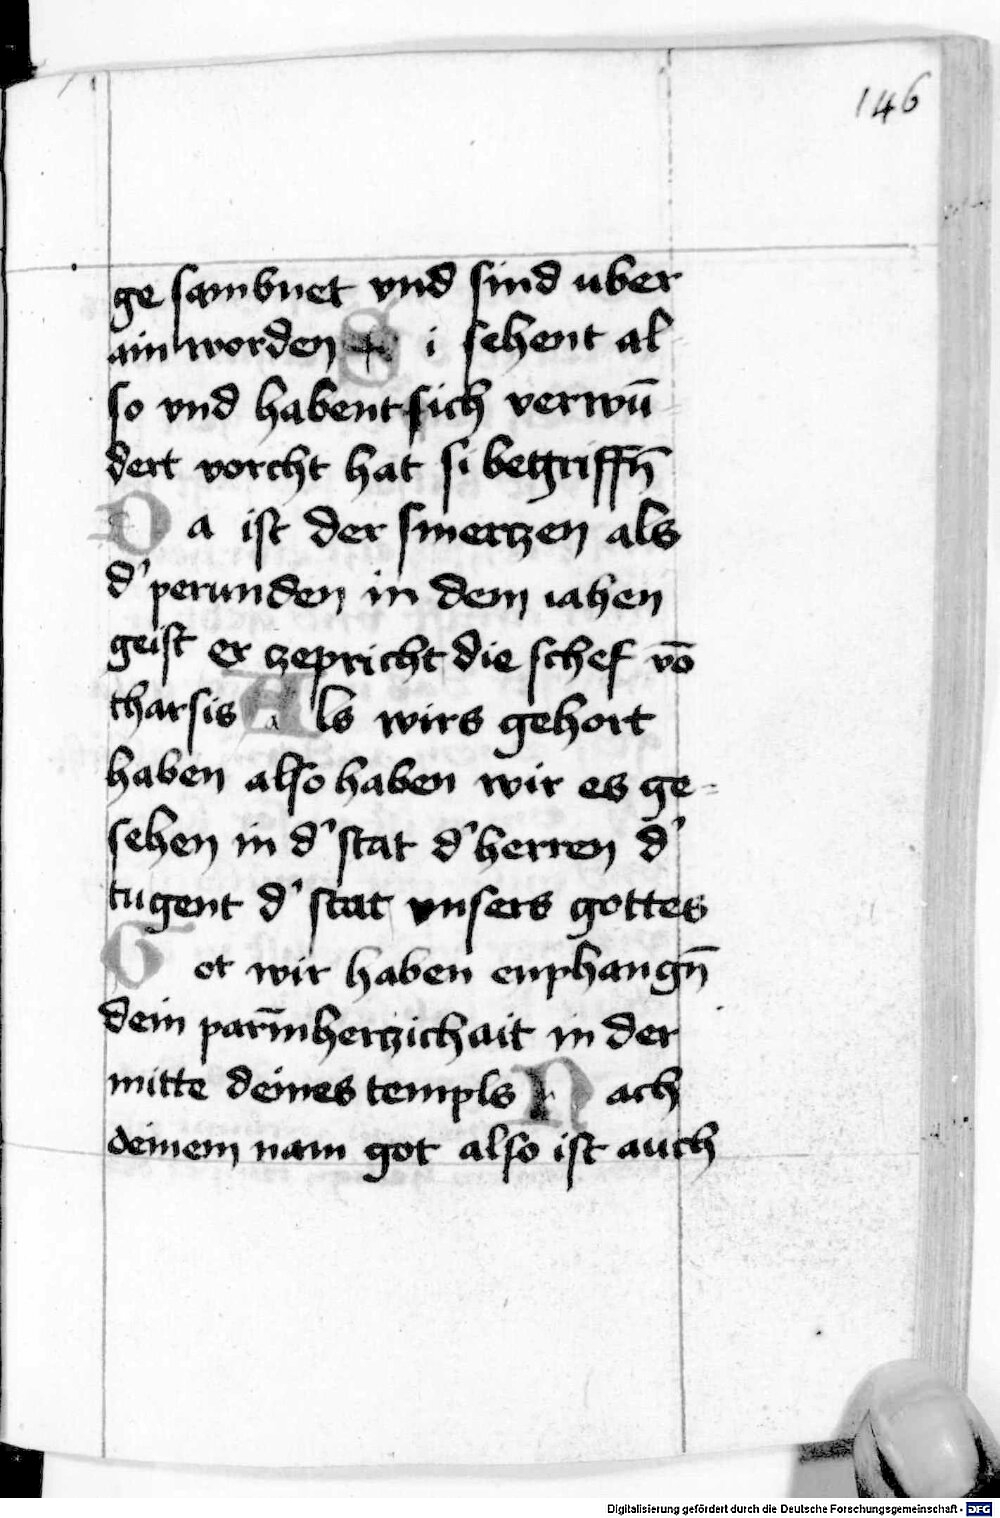 146
ge sambnet vnd sind uber
ain worden Si sehent al-
so vnd habent sich verwū=
dert vorcht hat si begriffn̄
Da ist der smertzen als
d' perunden in dem iahen
geist er zepricht die schef vō
tharsis Als wirs gehort
haben also haben wir es ge=
sehen in d' stat d' herren d'
tugent d' stat vnsers gottes
Got wir haben enphangn̄
dein parm̄hertzichait in der
mitte deines templs Nach
deinem nam got also ist auch
Digitalisierung gefördert durch die Deutsche Forschungsgemeinschaft - DFG